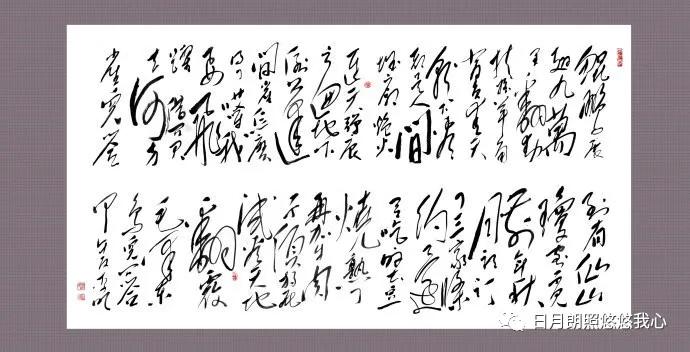 鲲鹏展
翅九萬
里翻動
扶摇羊角
背负青天
朝下看
都是人間
城廓炮火
连天弹痕
遍地吓
倒蓬
間雀怎麽
得了哎呀我
要飛
躍借问君
去何方
雀儿答
道有仙山
琼阁不见
前年秋
月朗订
了三家條
约还
有吃的土豆
烧熟了
再加牛肉
不须放屁
试看天地
翻覆
毛泽东
鸟儿问答
日月朗照悠悠我心